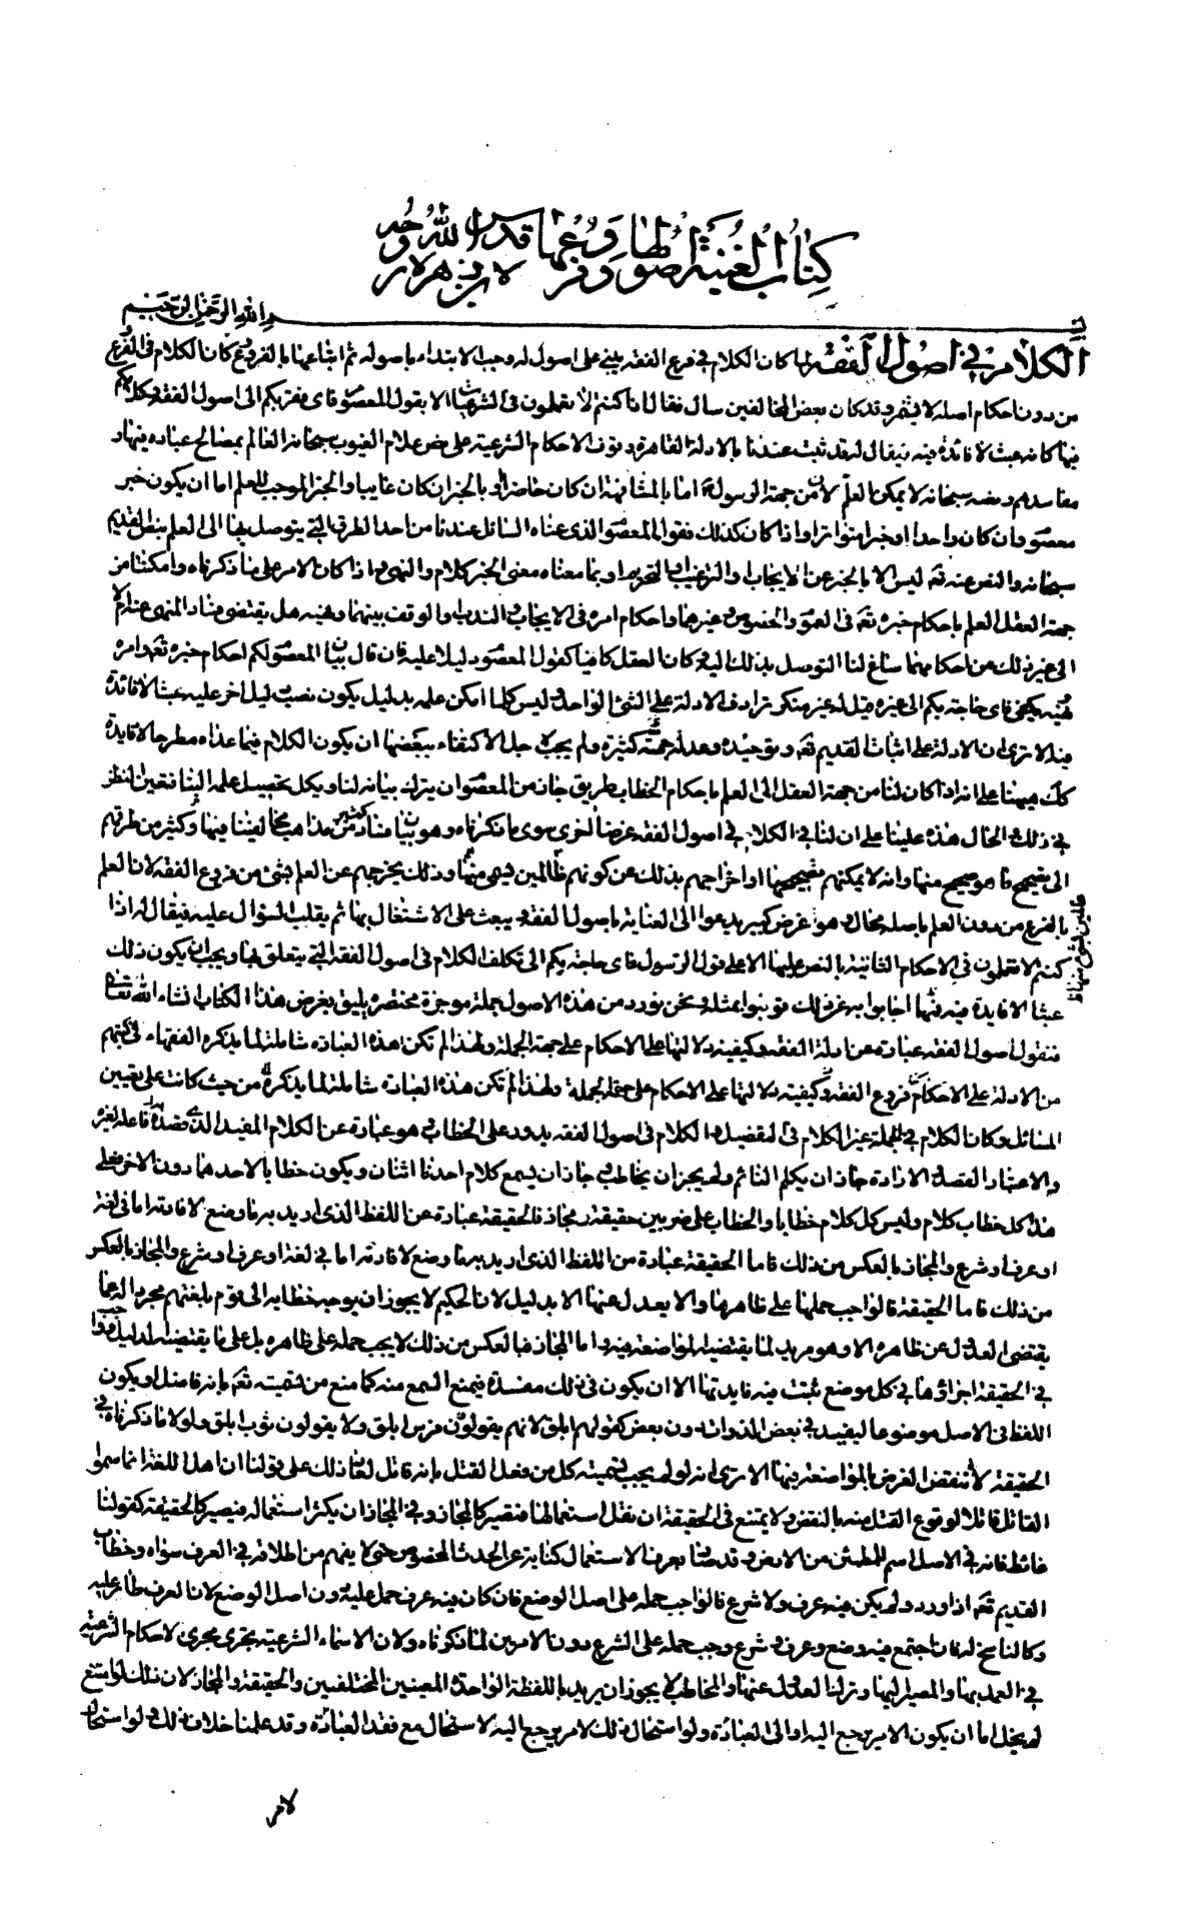 كتاب الغنية اصولها وفروعها قدس الله روحه
لابن زهرة
بسم الله الرحمن الرحيم
الكلام في اصول الفقه لما كان الكلام في فروع الفقه يبنى على اصول له وجب الابتداء باصوله ثم اتباعها بالفروع كان الكلام في الفرع
من دون احكام اصله لا يثمر وقد كان بعض المخالفين سال فقال اذا كنتم لا تعملون في الشرعيات الا بقول المعصوم فاى فقر بكم الى اصول الفقه وكلامكم
فيها كانه عبث لا فائدة فيه فيقال له قد ثبت عندنا بالادلة القاهرة وقوف الاحكام الشرعية على علام الغيوب سبحانه العالم بمصالح عباده فيها و
مفاسدهم ونصه سبحانه لا يمكن العلم الا من جهة الرسول اما بالمشافهة ان كان حاضرا او بالخبر ان كان غايبا والخبر الموجب للعلم اما ان يكون خبر
معصوم وان كان واحدا او خبرا متواترا واذا كان كذلك فقول المعصوم الذى عناه السائل عندنا من احد الطرق التى يتوصل بها الى العلم بنص القديم
سبحانه والنص عنه تع ليس الا بالخبر عن الايجاب او الترغيب او التحريم او بما معناه معنى الخبر كلام والنهى واذا كان الامر على ما ذكرناه وامكننا من
جهة العقل العلم باحكام خبره تع في العموم والخصوص وغيرهما واحكام امره في الايجاب والندب والوقف بينهما ونهيه هل يقتضى فساد المنهى عنه ام لا
الى غير ذلك من احكامهما ساغ لنا التوصل بذلك اليه وكان العقل كافيا كقول المعصوم دليلا عليه فان قال بيان المعصوم لكم احكام خبره تع وامره
ونهيه يكفى فاى حاجة بكم الى غيره قيل له غير منكر ترادف الادلة على الشئ الواحد وليس كلما امكن علمه بدليل يكون نصب دليل اخر عليه عبثا لا فائدة
فيه الا ترى ان الادلة على اثبات القديم تع وتوحيده وعدله جمة كثيرة ولم يجب لاجل الاكتفاء ببعضها ان يكون الكلام فيما عداه مطرحا لا فايدة
كك هيهنا على انه اذا كان لنا من جهة العقل الى العلم باحكام الخطاب طريق جاز من المعصوم ان يترك بيانه لنا ويكل تحصيل علمه الينا فتعين النظر
في ذلك والحال هذه علينا على ان لنا في الكلام في اصول الفقه غرضا اخر سوى ما ذكرناه وهو بيان فساد كثير من مذاهب مخالفينا فيها وكثير من طرقهم
الى تصحيح ما هو صحيح منها وانه لا يمكنهم تصحيحها او اخراجهم بذلك عن كونهم عالمين بشئ منها وذلك يخرجهم عن العلم بشئ من فروع الفقه لان العلم
بالفرع من دون العلم باصله محال وهو غرض كبير يدعو الى العناية باصول الفقه ويبعث على الاشتغال بها ثم يقلب السؤال عليه فيقال له اذا
عالمين بشئ منها
كنتم لا تعملون في الاحكام الثابتة بالنص عليها الا على قول الرسول فاى حاجة بكم الى تكلف الكلام في اصول الفقه التى يتعلق بها ويجب ان يكون ذلك
عبثا لا فايدة فيه فمهما اجابوا به عن ذلك قوبلوا بمثله ونحن نورد من هذه الاصول جملة موجزة مختصرة يليق بغرض هذا الكتاب انشاء الله تعالى
فنقول اصول الفقه عبارة عن ادلة الفقه وكيفية دلالتها على الاحكام على جهة الجملة ولهذا لم تكن هذه العبارة شاملة لما يذكره الفقهاء في كتبهم
من الادلة على الاحكام فروع الفقه وكيفية دلالتها على الاحكام على جهة الجملة ولهذا لم تكن هذه العبارة شاملة لما يذكره من حيث كانت على تعيين
المسائل وكان الكلام في الجملة غير الكلام في التفصيل والكلام في اصول الفقه يدور على الخطاب وهو عبارة عن الكلام المفيد الذى قصد به فاعله لغيره
ولاعتبار القصد والارادة جاز ان يكلم النائم ولم يجز ان يخاطب وجاز ان يسمع كلام احدنا اثنان ويكون خطابا لاحدهما دون الاخر فعلى
هذا كل خطاب كلام وليس كل كلام خطابا والخطاب على ضربين حقيقة ومجاز فالحقيقة عبارة عن اللفظ الذى اريد به ما وضع لافادته اما في لغة
او عرف او شرع والمجاز بالعكس من ذلك فاما الحقيقة عبارة من اللفظ الذى اريد به ما وضع لافادته اما في لغة او عرف او شرع والمجاز بالعكس
من ذلك فاما الحقيقة فالواجب حملها على ظاهرها ولا يعدل عنها الا بدليل لان الحكيم لا يجوز ان يوجه خطابه الى قوم بلغتهم مجردا عما
يقتضى العدول عن ظاهره الا وهو مريد لما يقتضيه المواضعة فيه واما المجاز فبالعكس من ذلك لا يجب حمله على ظاهره بل على ما يقتضيه الدليل
في الحقيقة اجراؤها في كل موضع ثبت فيه فايدتها الا ان يكون في ذلك مفسدة فيمنع السمع منه كما منع من تسميته تع بانه فاضل او يكون
اللفظ في الاصل موضوعا ليفيد في بعض الذوات دون بعض كقولهم ابلق لانهم يقولون فرس ابلق ولا يقولون ثوب ابلق ولولا ما ذكرناه في
الحقيقة لانتقض الغرض بالمواضعة فيها الا ترى انه لو لم يجب تسمية كل من فعل القتل بانه قاتل لعاد ذلك على قولنا ان اهل اللغة انما سموا
القاتل قاتلا لوقوع القتل منه بالنقض ولا يمتنع في الحقيقة ان يقل استعمالها فتصير كالمجاز وفي المجاز ان يكثر استعماله فيصير كالحقيقة كقولنا
غائط فانه في الاصل اسم للمطمئن من الارض وقد صار بعرف الاستعمال كناية عن الحدث المخصوص حتى لا يفهم من اطلاقه في العرف سواه وخطاب
القديم تع اذا ورد ولم يكن فيه عرف ولا شرع فالواجب حمله على اصل الوضع فان كان فيه عرف حمل عليه دون اصل الوضع لان العرف طار عليه
وكالناسخ له فان اجتمع فيه وضع وعرف وشرع وجب حمله على الشرع دون الامرين لما ذكرناه ولان الاسماء الشرعية تجرى مجرى الاحكام الشرعية
في التعبد بها والمصير اليها وترك العدول عنها والمخاطب لا يجوز ان يريد باللفظة الواحدة المعنيين المختلفين والحقيقة والمجاز لان ذلك لو امتنع
لم يخل اما ان يكون الامر يرجع اليه او الى العبارة ولو استحال ذلك لامر يرجع اليه لاستحال مع فقد العبارة وقد علمنا خلاف ذلك ولو استحال
لامر